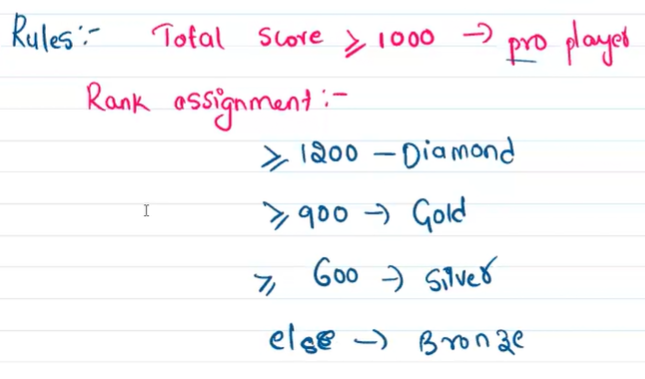 Rules:- Total Score ≥ 1000 → pro player
Rank assignment:-
≥ 1200 - Diamond
≥ 900 → Gold
≥ 600 → Silver
else → Bronze